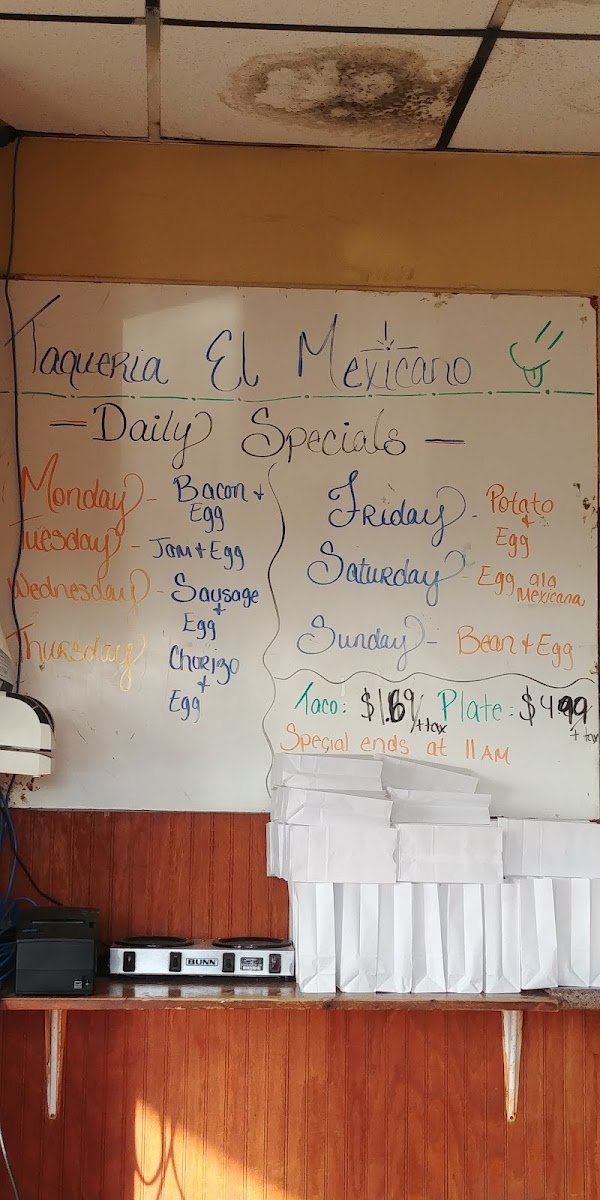 Taqueria El Mexicano
- Daily Specials -
Monday - Bacon +
Egg
Tuesday - Jam + Egg
Wednesday - Sausage
+
Egg
Thursday Chorizo
+
Egg
Friday - Potato
+
Egg
Saturday - Egg ala
Mexicana
Sunday - Bean + Egg
Taco: $1.69 + tax Plate: $4.99 + tax
Special ends at 11 AM
BUNN